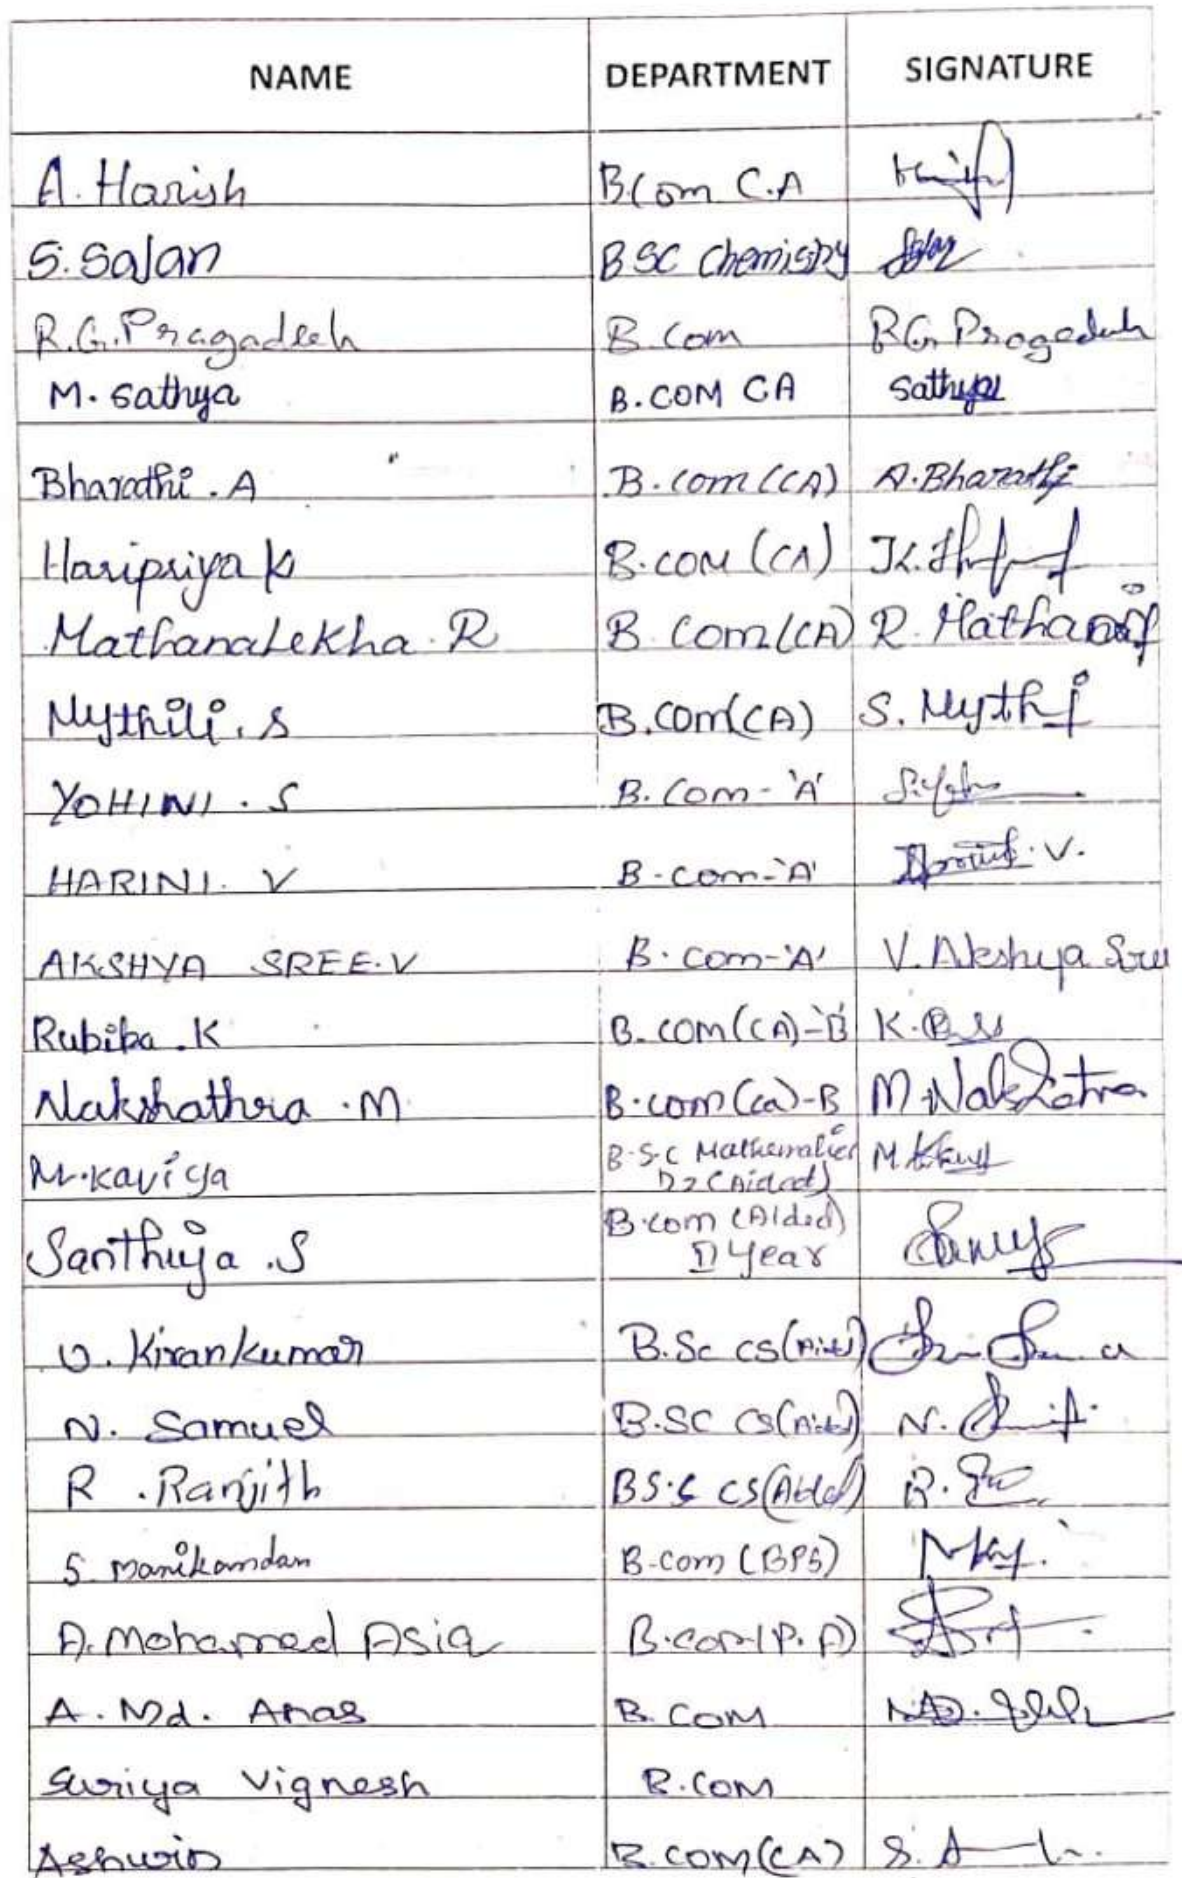 NAME DEPARTMENT SIGNATURE
A. Harish B.Com C.A
S. Sajan BSC Chemistry Sajan
R.G. Pragadeeh B.Com R.G. Pragadeeh
M. Sathya B.COM CA Sathya
Bharathi . A B.com (CA) A. Bharathi
Haripriya K B.COM (CA)
Mathanalekha . R B. Com (CA) R. Mathana
Mythili . S B.COM (CA) S. Mythi
YOHINI . S B. Com - 'A'
HARINI. V B - com - 'A' V.
AKSHYA SREE. V B. com - 'A' V. Akshya Sree
Rubiba . K B. com (CA) - 'B' K.
Nakshathra . M B. com (ca) - B M. Nakshatra
M. Kaviya B.S.C Mathematics M
(Aided)
Santhiya . S B.com (Aided)
II Year
U. Kirankumar B.Sc CS (Aided)
N. Samuel B.SC CS (Aided) N.
R . Ranjith BS.C CS (Aided) R.
S. Manikamdan B-com (BPS)
A. Mohamed Asia B.com (P.A)
A. Md. Anas B. COM
Suriya Vignesh B.COM
Ashwin B.COM (CA) S. A